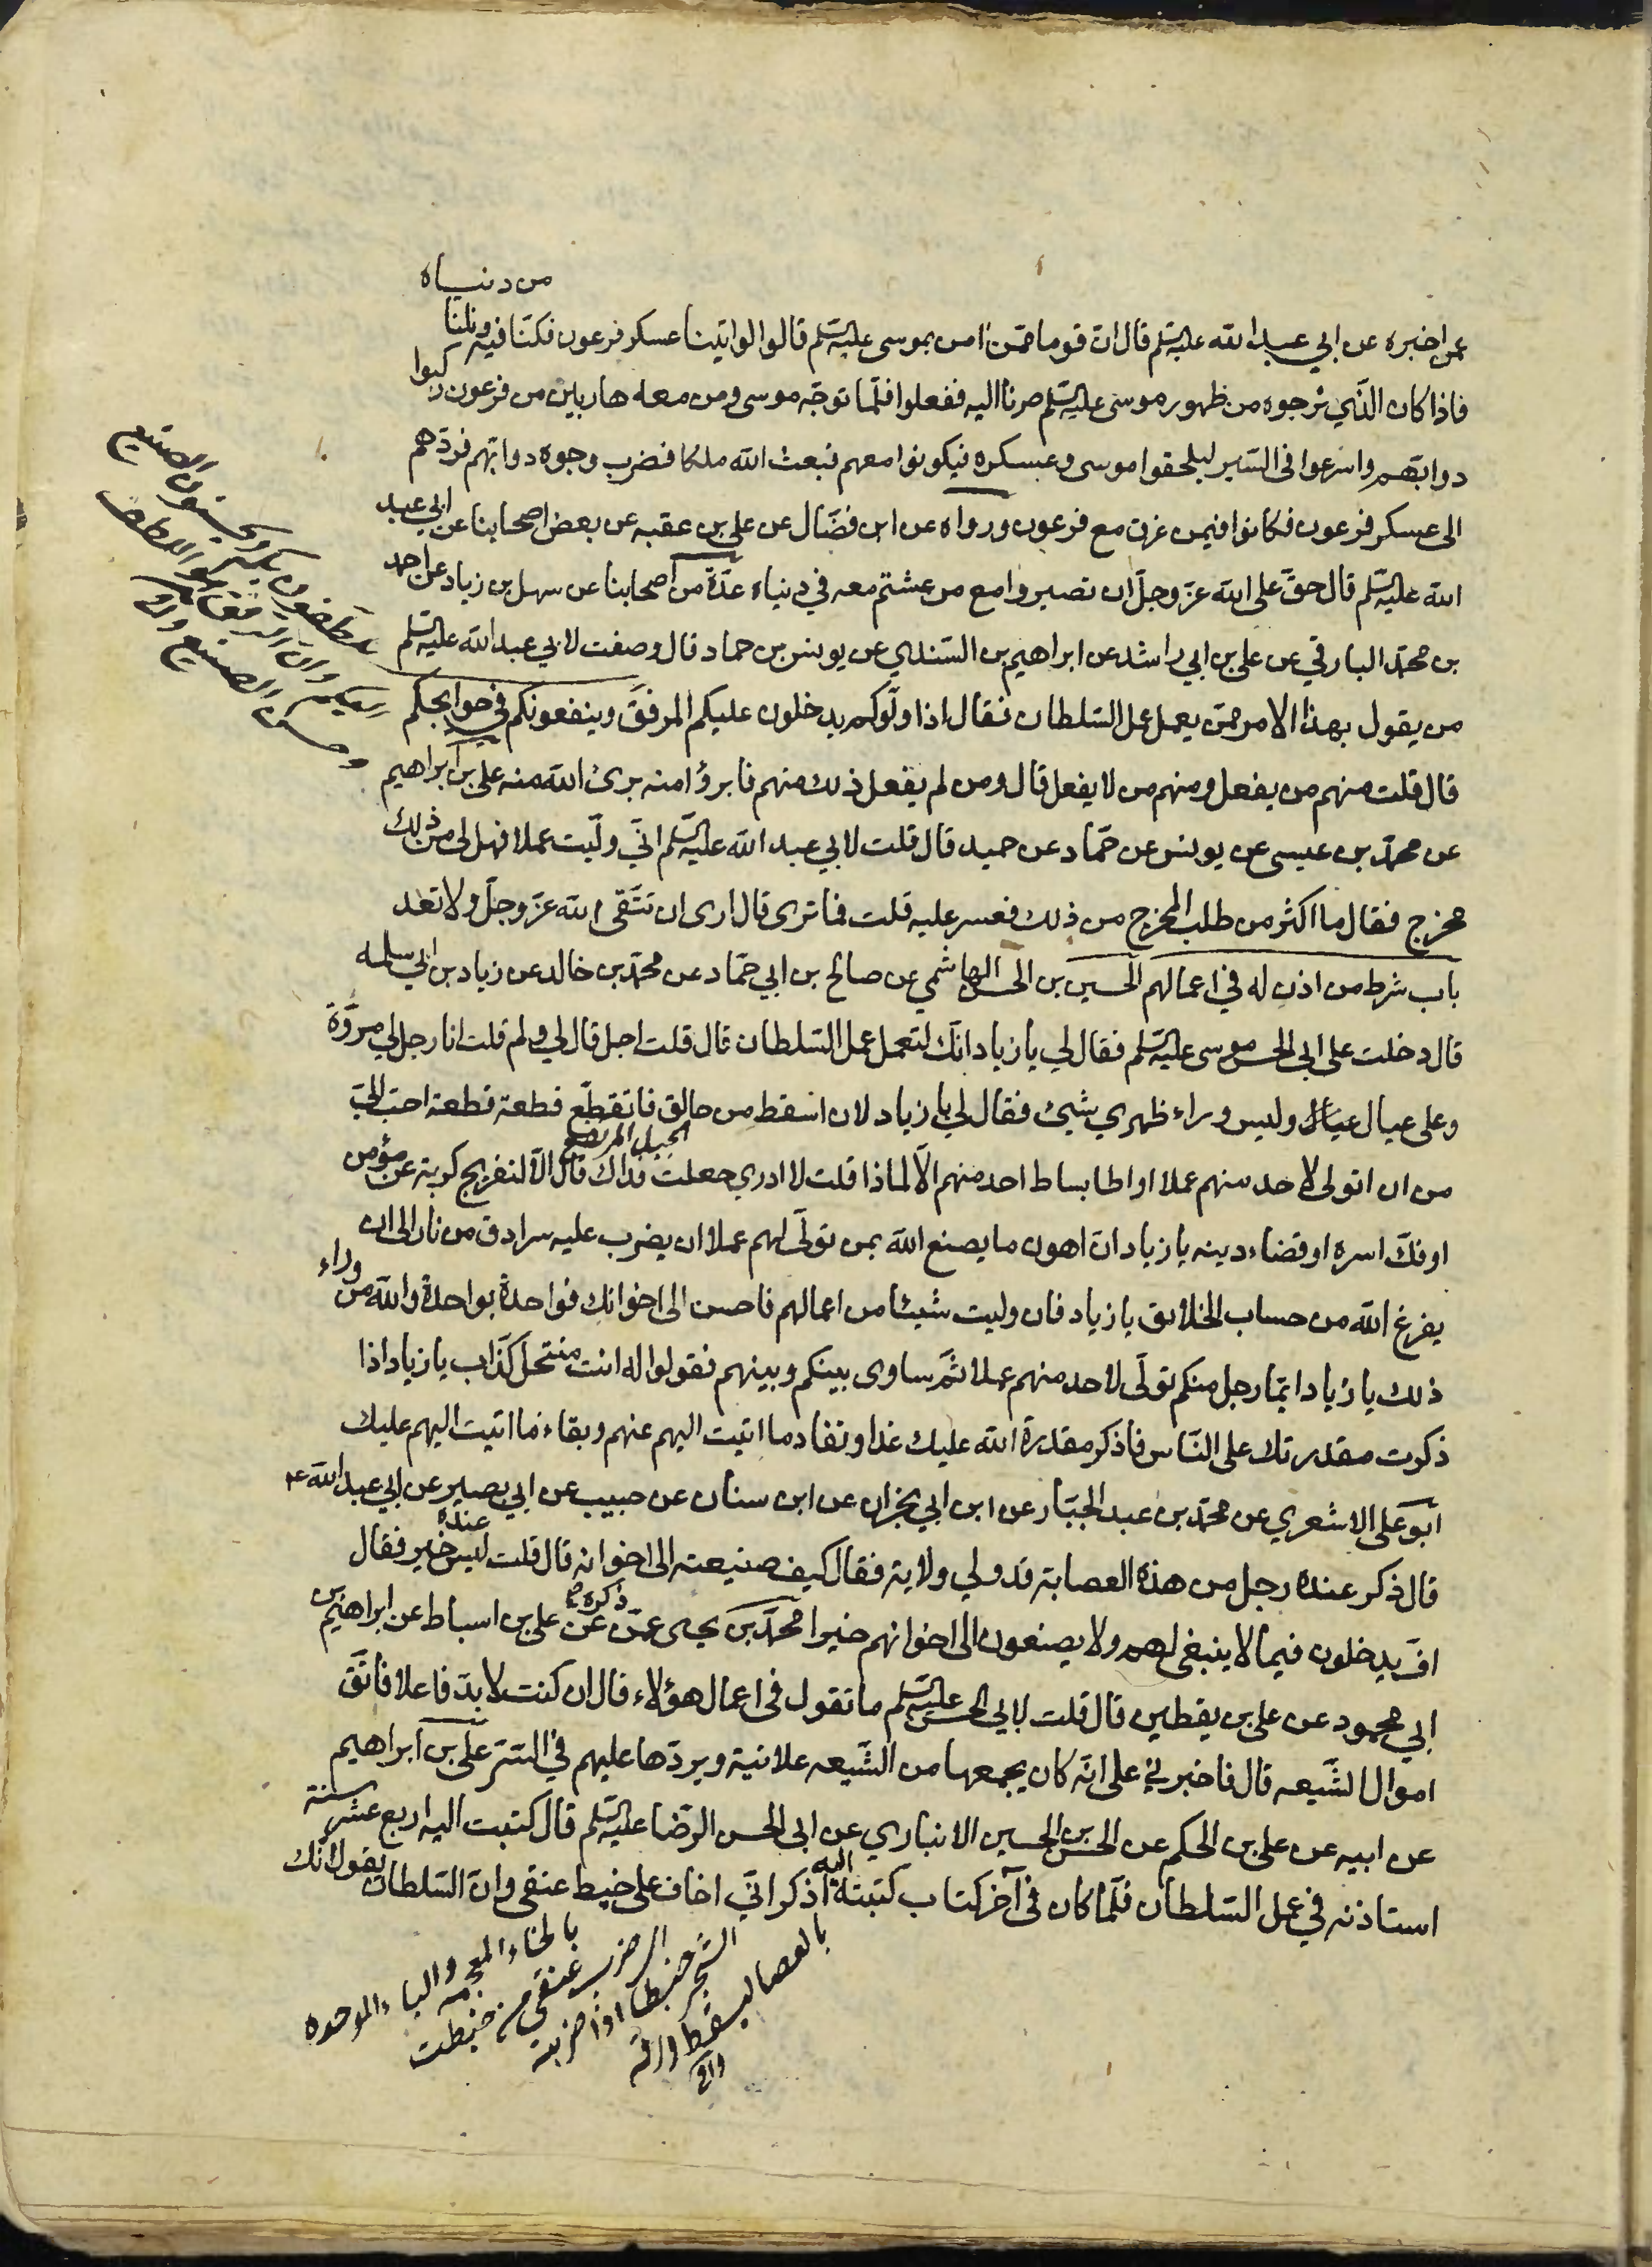 من دنياه
عمن اخبره عن ابي عبد الله عليه السلم قال ان قوما ممن امن بموسى عليه السلم قالوا لو اتينا عسكر فرعون فكنا فيه ونلنا
فاذا كان الذي نرجوه من ظهور موسى عليه السلم صرنا اليه ففعلوا فلما توجه موسى ومن معه هاربين من فرعون ركبوا
دوابهم واسرعوا في السير ليلحقوا موسى وعسكره فيكونوا معهم فبعث الله ملكا فضرب وجوه دوابهم فردهم
الى عسكر فرعون فكانوا فيمن غرق مع فرعون ورواه عن ابن فضال عن علي بن عقبه عن بعض اصحابنا عن ابي عبد
الله عليه السلم قال حق على الله عز وجل ان تصيروا مع من عشتم معه في دنياه عدة من اصحابنا عن سهل بن زياد عن احمد
بن محمد البارقي عن علي بن ابي راشد عن ابراهيم بن السندي عن يونس بن حماد قال وصفت لابي عبد الله عليه السلم
من يقول بهذا الامر ممن يعمل عمل السلطان فقال اذا ولوكم يدخلون عليكم المرفق وينفعونكم في حوايجكم
قال قلت منهم من يفعل ومنهم من لا يفعل قال ومن لم يفعل ذلك منهم فابرؤا منه برئ الله منه علي بن ابراهيم
عن محمد بن عيسى عن يونس عن حماد عن حميد قال قلت لابي عبد الله عليه السلم اني وليت عملا فهل لي من ذلك
مخرج فقال ما اكثر من طلب المخرج من ذلك فعسر عليه قلت فما ترى قال ارى ان تتقى الله عز وجل ولا تعد
باب شرط من اذن له في اعمالهم الحسين بن الحسن الهاشمي عن صالح بن ابي حماد عن محمد بن خالد عن زياد بن ابي سلمه
قال دخلت على ابي الحسن موسى عليه السلم فقال لي يا زياد انك لتعمل عمل السلطان قال قلت اجل قال لي ولم قلت انا رجل لي مروة
وعلي عيال وليس وراء ظهري شيئ فقال لي يا زياد لان اسقط من حالق فاتقطع قطعة قطعة احب الي
الجبل المرتفع
من ان اتولى لاحد منهم عملا او اطا بساط احد منهم الا لماذا قلت لا ادري جعلت فداك قال الا لتفريج كربة عن مؤمن
او فك اسره او قضاء دينه يا زياد ان اهون ما يصنع الله بمن تولى لهم عملا ان يضرب عليه سرادق من نار الى ان
يفرغ الله من حساب الخلايق يا زياد فان وليت شيئا من اعمالهم فاحسن الى اخوانك فواحدة بواحدة والله من وراء
ذلك يا زياد ايما رجل منكم تولى لاحد منهم عملا ثم ساوى بينكم وبينهم فقولوا له انت منتحل كذاب يا زياد اذا
ذكرت مقدرتك على الناس فاذكر مقدرة الله عليك غدا ونفاد ما اتيت اليهم عنهم وبقاء ما اتيت اليهم عليك
ابو علي الاشعري عن محمد بن عبد الجبار عن ابن ابي نجران عن ابن سنان عن حبيب عن ابي بصير عن ابي عبد الله ع
قال ذكر عنده رجل من هذه العصابة قد ولي ولاية فقال كيف صنيعته الى اخوانه قال قلت ليس عنده خير فقال
اف يدخلون فيما لا ينبغي لهم ولا يصنعون الى اخوانهم خيرا محمد بن يحيى عمن ذكره عن علي بن اسباط عن ابراهيم بن
ابي محمود عن علي بن يقطين قال قلت لابي الحسن عليه السلم ما تقول في اعمال هؤلاء قال ان كنت لا بد فاعلا فاتق
اموال الشيعه قال فاخبرني علي انه كان يجمعها من الشيعه علانية ويردها عليهم في الستر علي بن ابراهيم
عن ابيه عن علي بن الحكم عن الحسن بن الحسين الانباري عن ابي الحسن الرضا عليه السلم قال كتبت اليه اربع عشر سنة
استاذنه في عمل السلطان فلما كان في آخر كتاب كتبته اليه اذكر اني اخاف على خبط عنقي وان السلطان يقول انك
بالخاء المعجمه والباء الموحده
الضرب عنقي من خبطت
الشجر خبطا اذا ضربته
بالعصا ليسقط ورقه
وافي